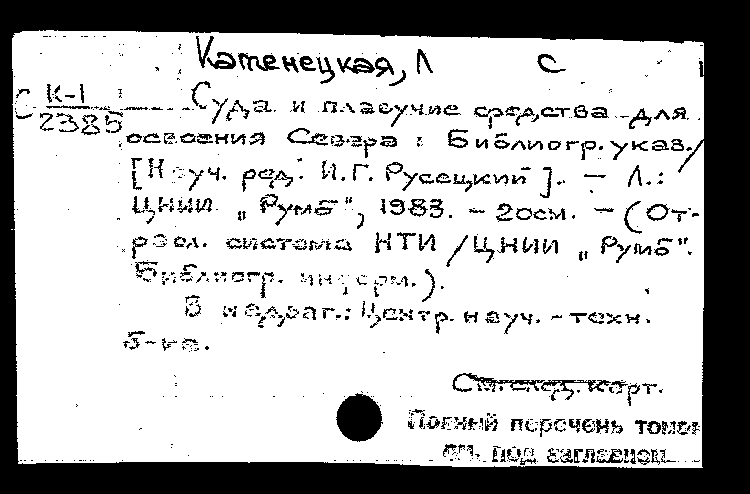 Катенецкая, Л С
С К-1 Суда и плавучие средства для
2385 освоения Севера : Библиогр. указ./
[Науч. ред. И.Г. Русецкий]. – Л.:
ЦНИИ „Румб", 1983. – 20см. – (От-
расл. система НТИ / ЦНИИ „Румб".
Библиогр. информ.).
В надзаг.: Центр. науч. – техн.
б-ка.
См. след. карт.
Полный перечень томов
см. под заглавием